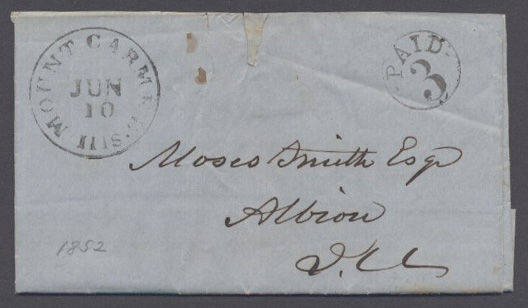 MOUNT CARMEL ILLS.
JUN
10
PAID
3
Moses Smith Esqr
Albion
Ill
1852